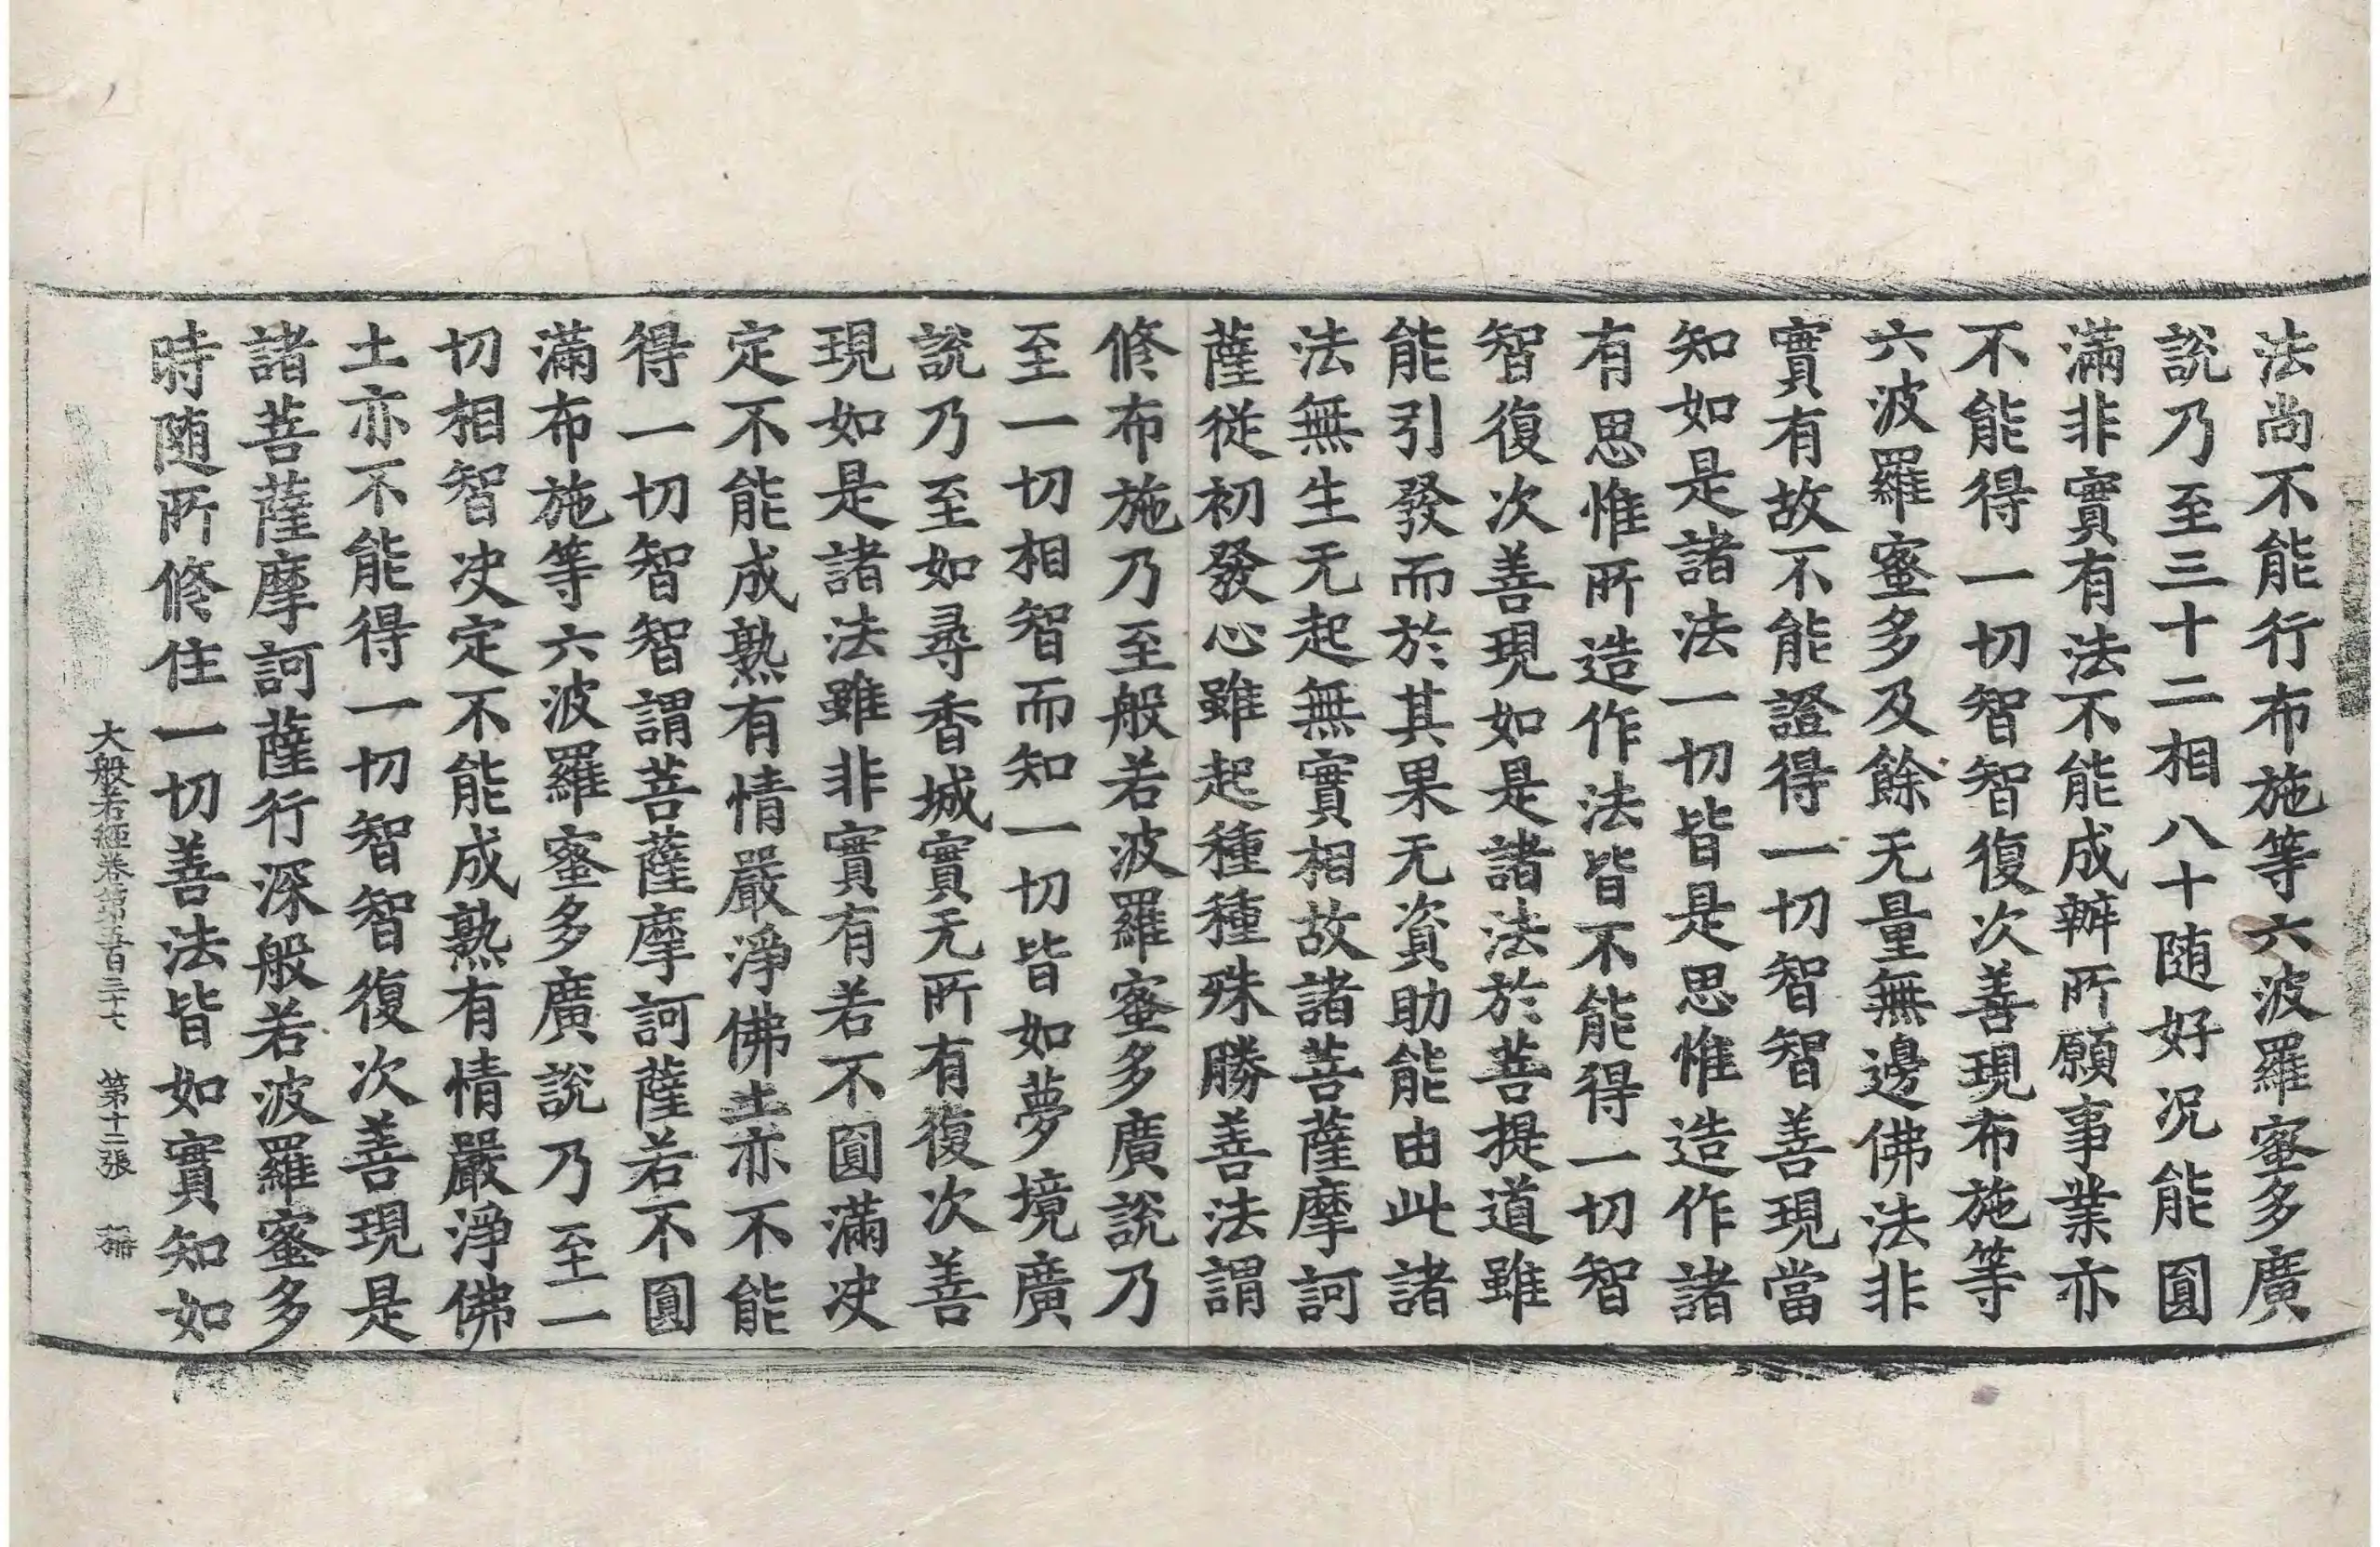 法尚不能行布施等六波羅蜜多廣
說乃至三十二相八十随好况能圓
滿非實有法不能成辦所願事業亦
不能得一切智智復次善現布施等
六波羅蜜多及餘无量無邊佛法非
實有故不能證得一切智智善現當
知如是諸法一切皆是思惟造作諸
有思惟所造作法皆不能得一切智
智復次善現如是諸法於菩提道雖
能引發而於其果无資助能由此諸
法無生无起無實相故諸菩薩摩訶
薩從初發心雖起種種殊勝善法謂
修布施乃至般若波羅蜜多廣說乃
至一切相智而知一切皆如夢境廣
說乃至如尋香城實无所有復次善
現如是諸法雖非實有若不圓滿决
定不能成熟有情嚴淨佛土亦不能
得一切智智謂菩薩摩訶薩若不圓
滿布施等六波羅蜜多廣說乃至一
切相智决定不能成熟有情嚴淨佛
土亦不能得一切智智復次善現是
諸菩薩摩訶薩行深般若波羅蜜多
時随所修住一切善法皆如實知如
大般若經卷第五百三十七 第十二張